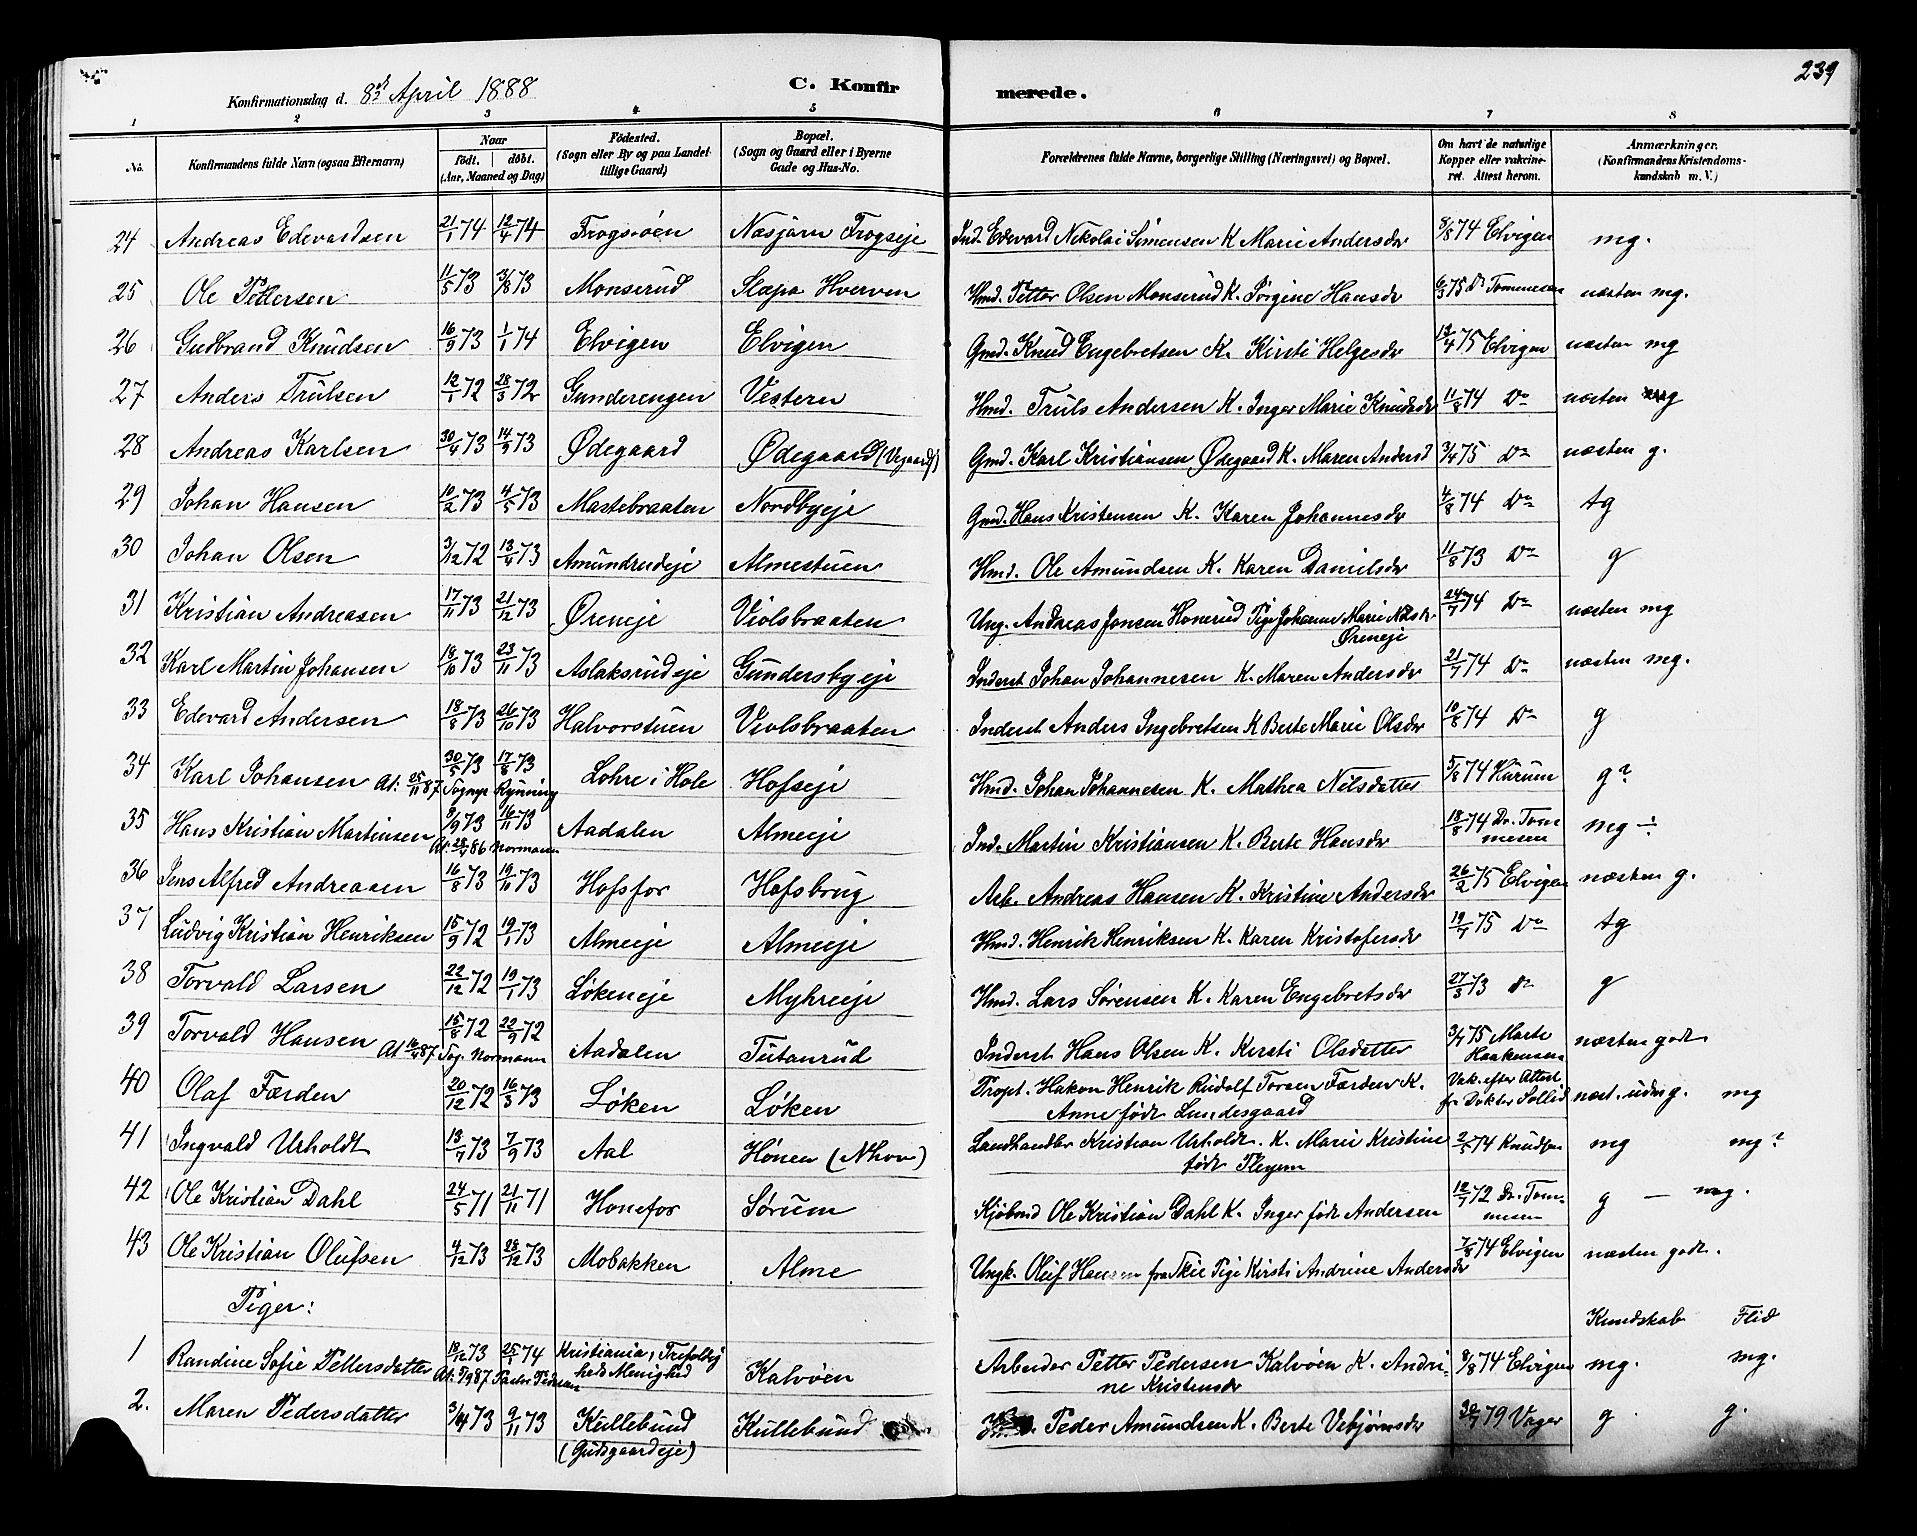 239
Konfirmationsdag d. 8de April 1888 C. Konfirmerede.
1 2 3 4 5 6 7 8
No. Konfirmandens fulde Navn (ogsaa Efternavn) Naar født. døbt. (Aar, Maaned og Dag) Fødested. (Sogn eller By og paa Landet tillige Gaard) Bopæl. (Sogn og Gaard eller i Byerne Gade og Hus-No. Forældrenes fulde Navne, borgerlige Stilling (Næringsvei) og Bopæl. Om havt de naturlige Kopper eller vakcineret. Attest herom. Anmærkninger. (Konfirmandens Kristendomskundskab m. V.)
24 Andreas Edevardsen 21/1 74 12/4 74 Frogsøen Næsjarn Frogseje Ind. Edevard Nikolai Simensen K Marie Andersdr 8/8 74 Elvigen mg.
25 Ole Pettersen 11/5 73 3/8 73 Monserud Slapa Hverven Hmd. Petter Olsen Monserud K. Jørgine Hansdr 6/3 75 Dr Tommesen næsten mg.
26 Gudbrand Knudsen 16/9 73 1/1 74 Elvigen Elvigen Gmd. Knud Engebretsen K. Kirsti Helgesdr 12/4 75 Elvigen næsten mg
27 Anders Trulsen 12/1 72 28/3 72 Gunderengen Vestern Hmd. Truls Andersen K. Inger Marie Knudsdr 11/8 74 Do næsten g
28 Andreas Karlsen 30/4 73 14/9 73 Ødegaard Ødegaard (Vegaard) Gmd. Karl Kristiansen Ødegaard K. Maren Andersd 3/4 75 Do næsten g.
29 Johan Hansen 10/2 73 4/5 73 Mastebraaten Nordbyeje Gmd. Hans Kristensen K. Karen Johannesdr 4/8 74 Do tg
30 Johan Olsen 3/12 72 13/4 73 Amundrudeje Almestuen Hmd. Ole Amundsen K. Karen Danielsdr 11/8 73 Do g
31 Kristian Andreasen 17/11 73 21/12 73 Øreneje Violsbraaten Ung. Andreas Jonsen Honerud Pige Johanne Marie Nilsdr 24/7 74 Do næsten mg
Øreneje
32 Karl Martin Johansen 18/10 73 23/11 73 Aslaksrudeje Gundersbyeje Inderst Johan Johannesen K. Maren Andersdr 21/7 74 Do næsten mg.
33 Edevard Andersen 18/8 73 26/10 73 Halvorstuen Violsbraaten Inderst Anders Ingebretsen K Berte Marie Olsdr 10/8 74 Do g
34 Karl Johansen 30/5 73 17/8 73 Lohre i Hole Hofseje Hmd. Johan Johannesen K. Mathea Nilsdatter 5/8 74 Hurum g?
At: 25/11 87 Sognepr Rynning
35 Hans Kristian Martinsen 8/9 73 16/11 73 Aadalen Almeeje Ind. Martin Kristiansen K. Berte Hansdr 18/8 74 Dr. Tommesen mg ÷
At. 86 Normann
36 Jens Alfred Andreasen 16/8 73 19/10 73 Hofsfor Hofsbrug Arb. Andreas Hansen K. Kristine Andersdr 26/2 75 Elvigen næsten g.
37 Ludvig Kristian Henriksen 15/9 72 19/1 73 Almeeje Almeeje Hmd. Henrik Henriksen K. Karen Kristofersdr 19/7 75 Do tg
38 Torvald Larsen 22/12 72 19/1 73 Løkeneje Myhreeje Hmd. Lars Sørensen K. Karen Engebretsdr 27/3 73 Do g
39 Torvald Hansen 15/8 72 22/9 72 Aadalen Tutanrud Inderst Hans Olsen K. Kersti Olsdatter 3/7 75 Marte Haakensen næsten godt
At 16/4 87 Sog. Normann
40 Olaf Færden 20/12 72 16/3 73 Løken Løken Propt. Hakon Henrik Rudolf Torsen Færden K. Vak. efter Attest fr Doktor Sollid næst. udm g. mg
Anne født Lundesgaard
41 Ingvald Urholdt 13/7 73 7/9 73 Aal Hønen (Nhov) Landhandler Kristian Urholdt K. Marie Kristine 2/5 74 Knudsen mg mg?
født Fleyem
42 Ole Kristian Dahl 24/5 71 21/11 71 Honefor Sørum Kjøbmd Ole Kristian Dahl K. Inger født Andersen 12/7 72 Dr. Tommesen g — mg.
43 Ole Kristian Olufsen 4/12 73 28/12 73 Mobakken Alme Ungk. Oluf Hansen fra Skie Pige Kirsti Andrine Andersdr 7/8 74 Elvigen næsten godt.
Piger: Kundskab Flid
1 Randine Sofie Pettersdatter 18/12 73 25/1 74 Kristiania, Trefoldigheds Menighed Kalvøen Arbeider Petter Pedersen Kalvøen K. Andrine Kristensdr 8/8 74 Elvigen mg. mg.
At. 5/9 87 Pastor Pedersen
2. Maren Pedersdatter 3/4 73 9/11 73 Kullebund (Gudsgaardeje) Kullebund Peder Amundsen K. Berte Vebjørnsdr 30/7 79 Vager g. g.